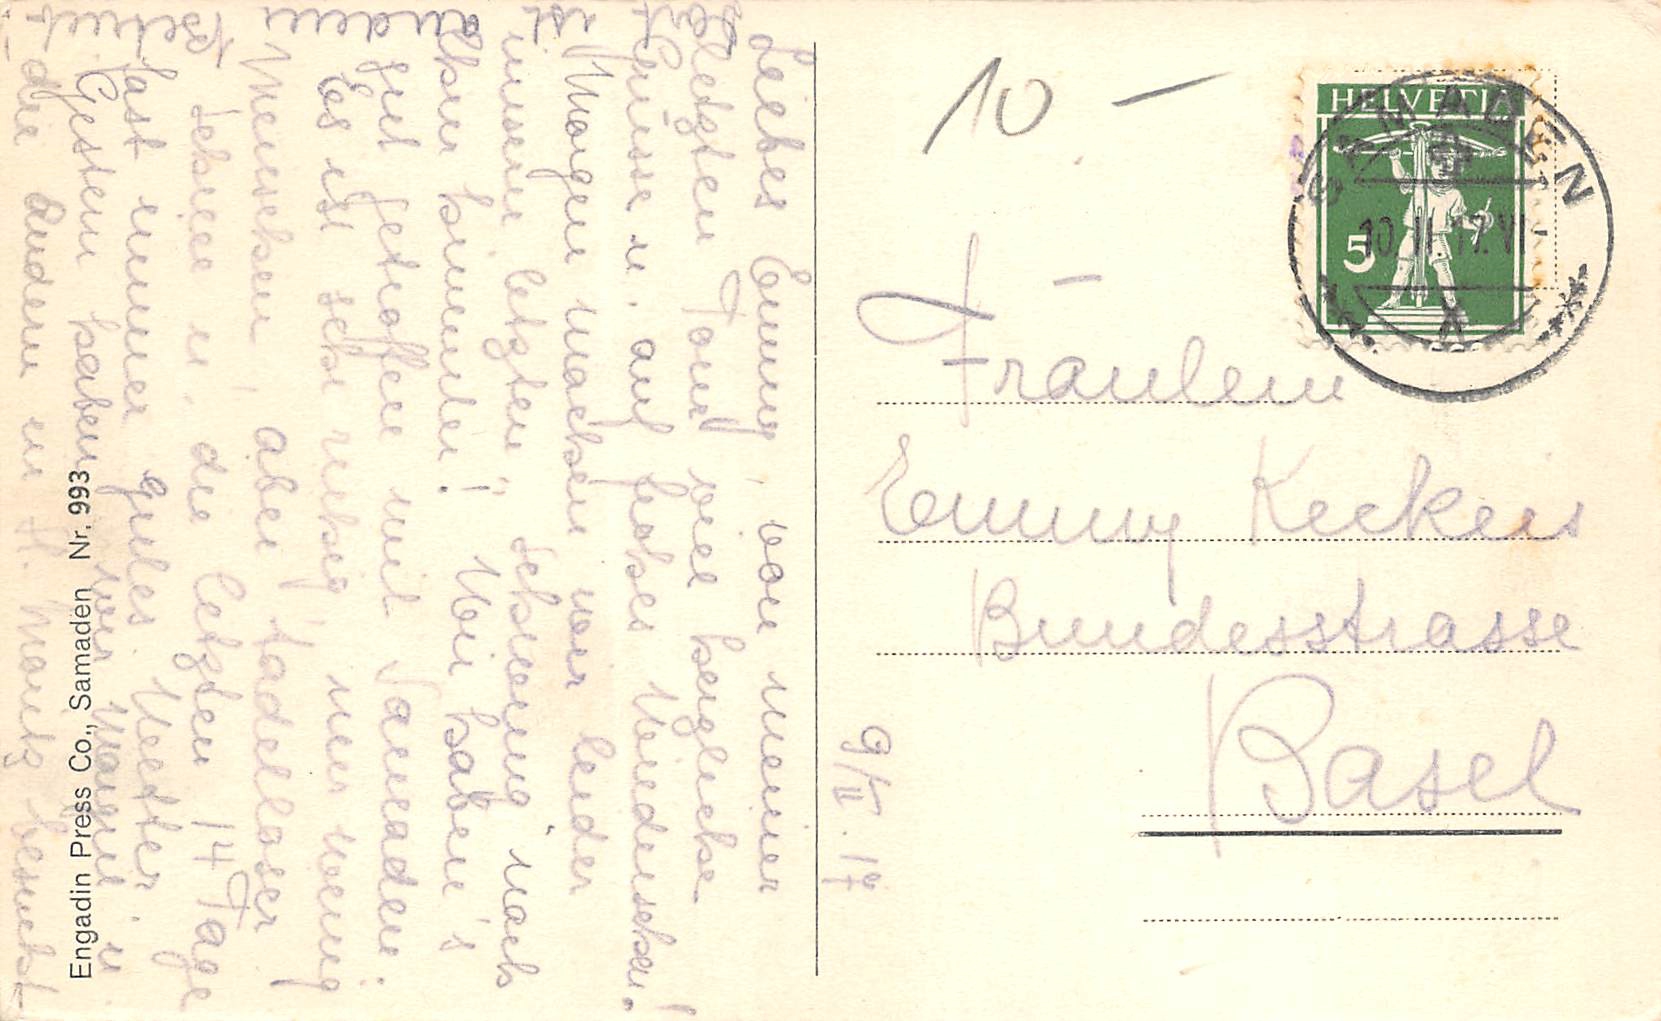 Liebes Emmy, von meiner
letzten Tour viel herzliche
Grüsse u. auf frohes Wiedersehen!
Morgen machen wir leider
unsere letzten Schwung nach
Chur hinunter! Wir haben's
gut getroffen mit Samaden.
Es ist sehr ruhig nur wenig
Menschen, aber tadelloser
Schnee u. die letzten 14 Tage
fast immer gutes Wetter.
Gestern haben wir Margrit u.
die Andern in St. Moritz besucht
Engadin Press Co., Samaden Nr. 993
9/II. 17
10 –
HELVETIA
5
SAMADEN
10.II.17.VI
Fräulein
Emmy Keckeis
Bundesstrasse
Basel